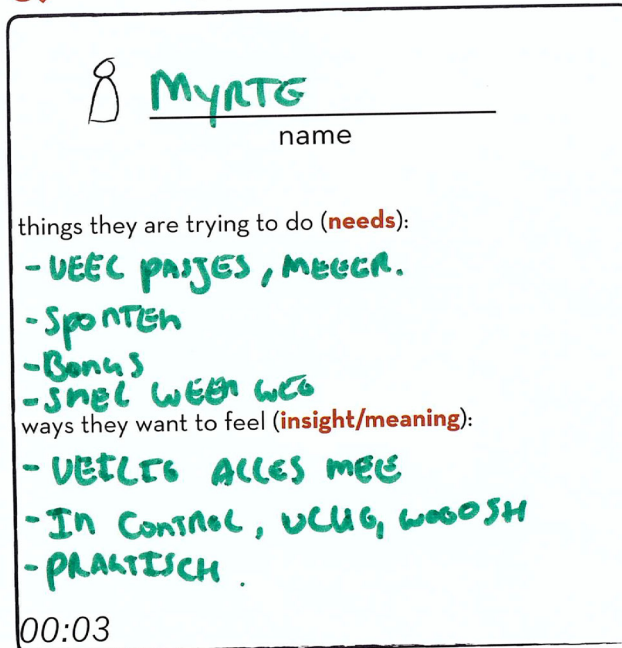 MYRTE
name
things they are trying to do (needs):
- VEEL PASJES,
- SPORTEN
- BONUS
- SNEL WEER WEG
ways they want to feel (insight/meaning):
- VEILIG ALLES MEE
- IN CONTROL, VLUG, WOOOSH
- PRAKTISCH.
00:03